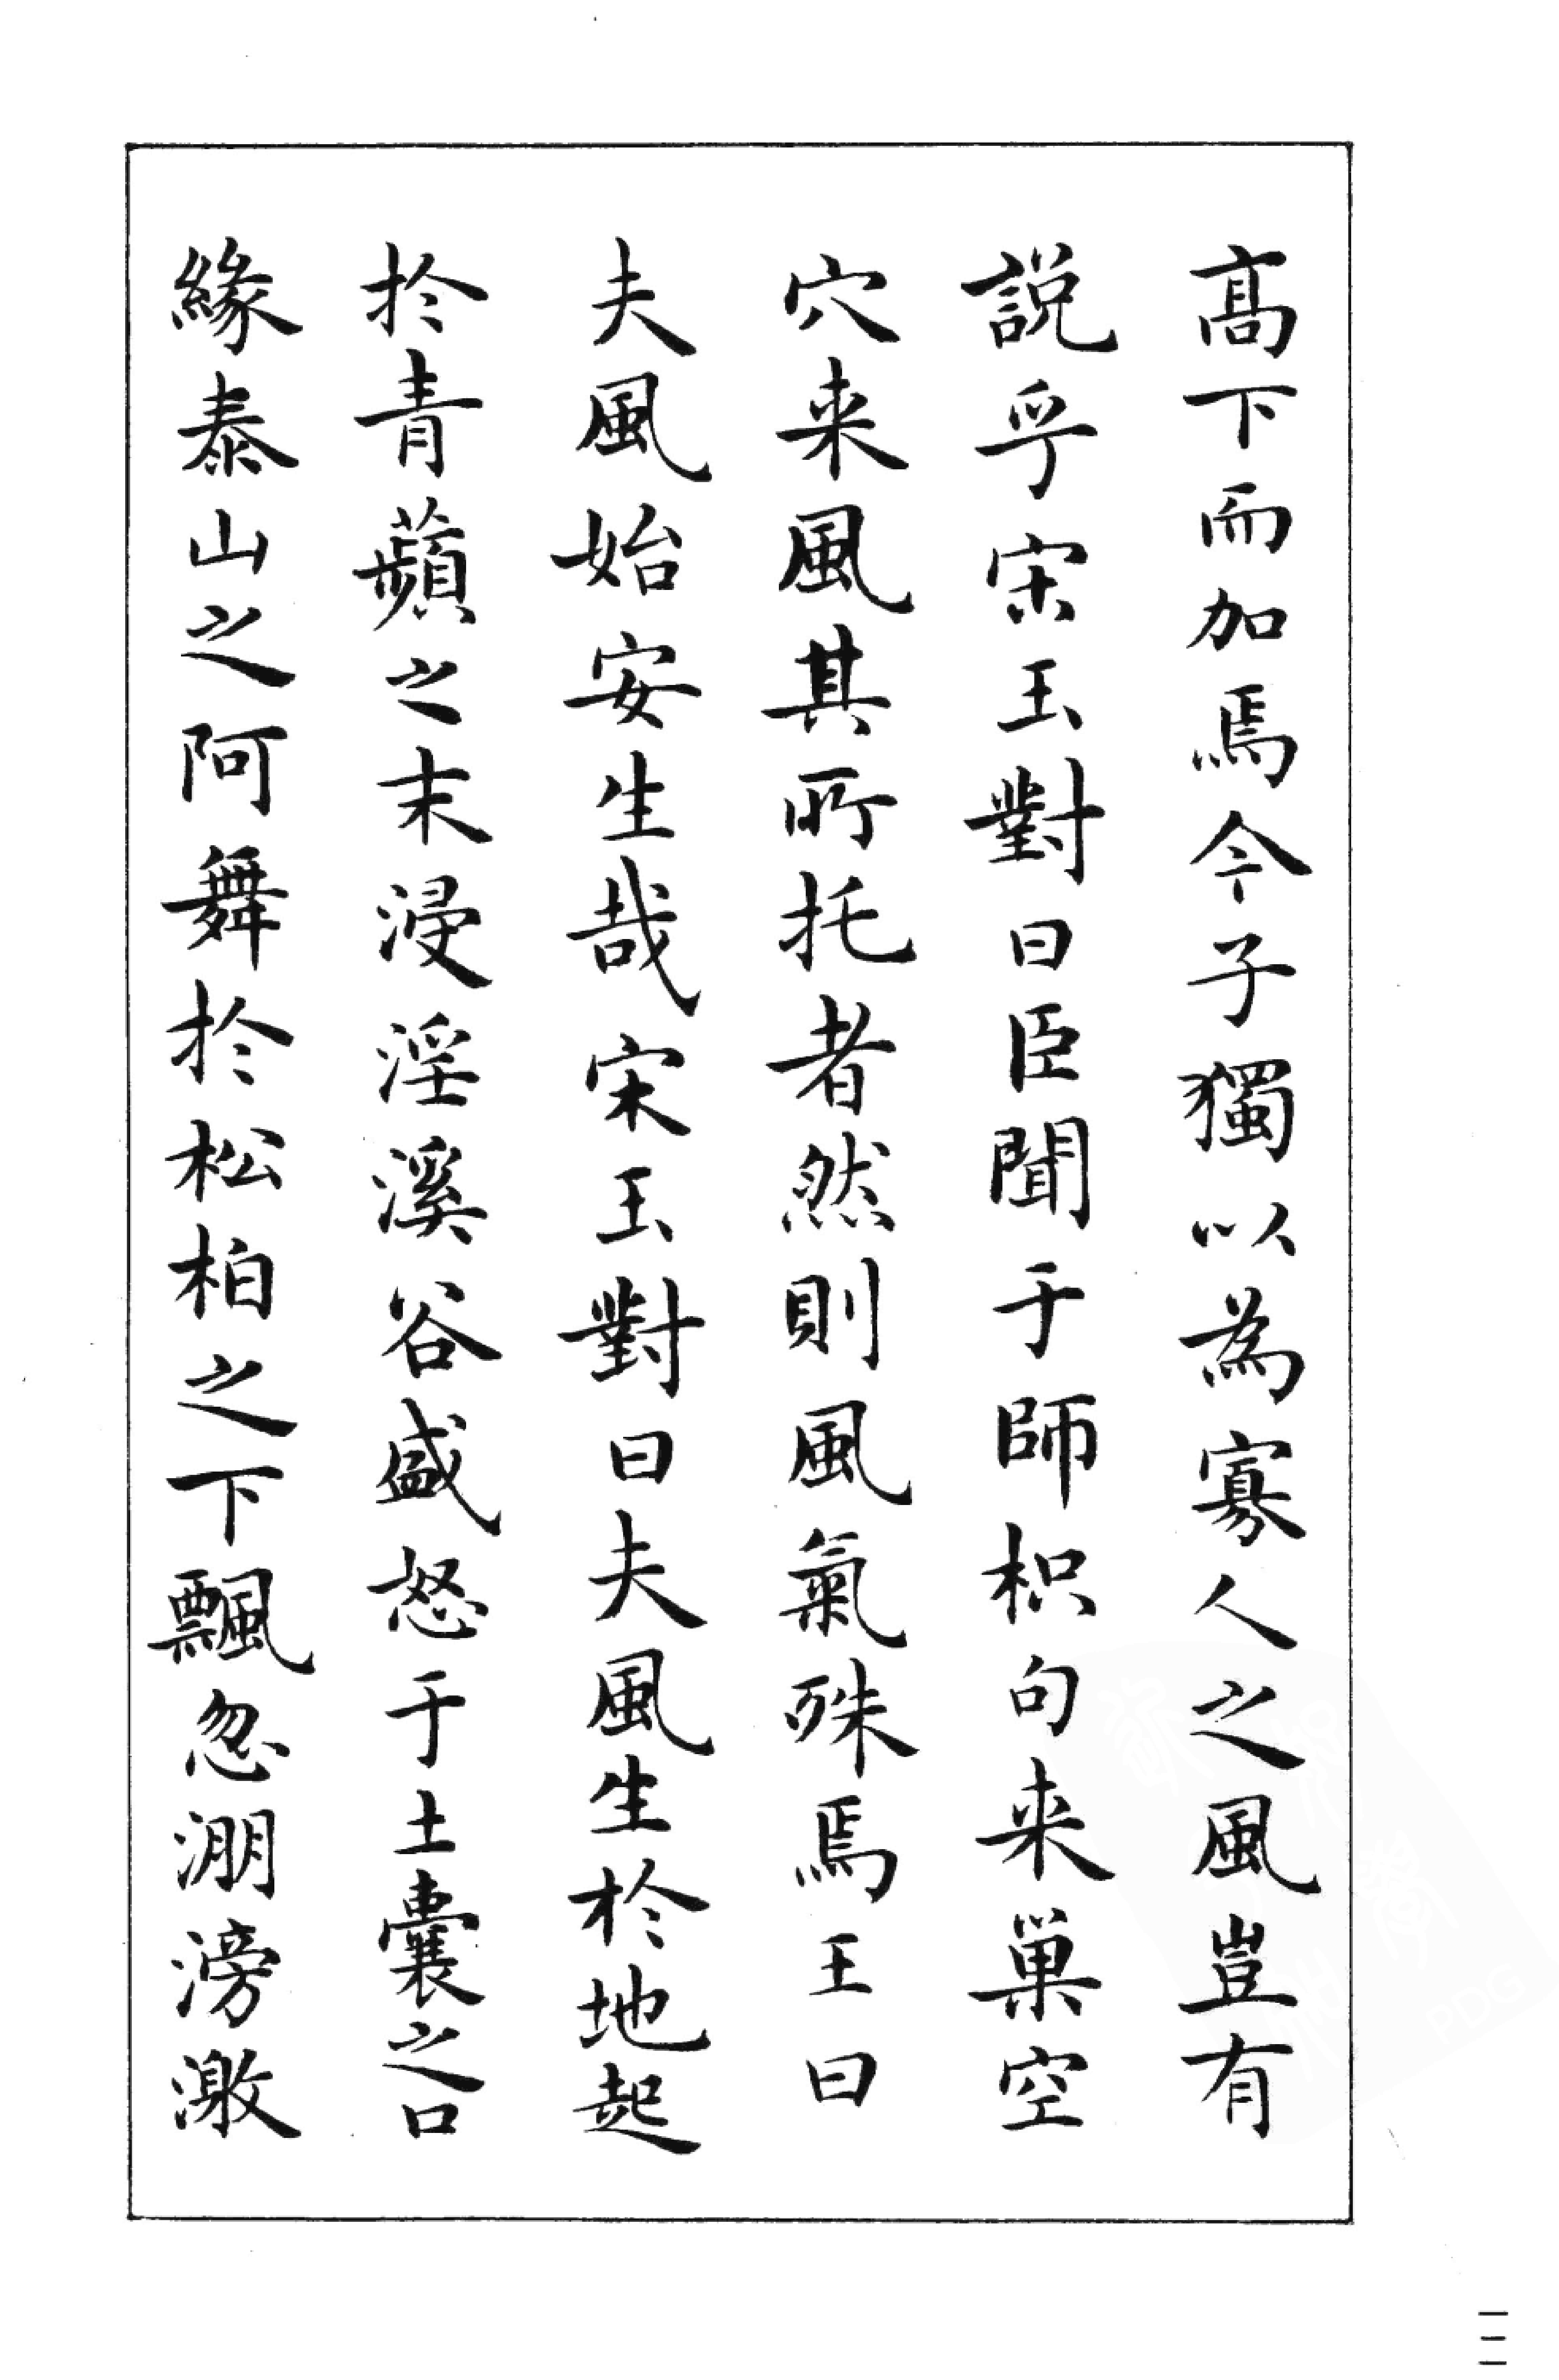 高下而加焉今子獨以為寡人之風豈有
説乎宋玉對曰臣聞于師枳句来巢空
穴来風其所托者然則風氣殊焉王曰
夫風始安生哉宋玉對曰夫風生於地起
於青蘋之末浸淫溪谷盛怒于土囊之口
緣泰山之阿舞於松柏之下飄忽淜滂激
一二